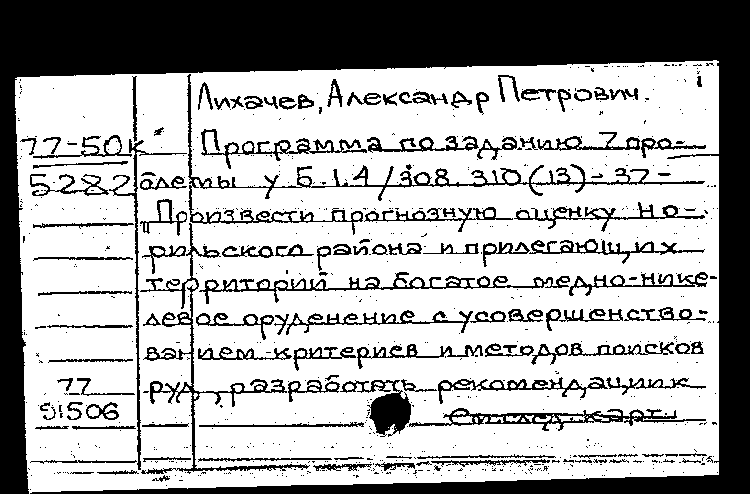 Лихачев, Александр Петрович.
77-50к Программа по заданию 7 про-
5282 блемы у Б.1.4/308.310(13)-37-
"Произвести прогнозную оценку Но-
рильского района и прилегающих
территорий на богатое медно-нике-
левое оруденение с усовершенство-
ванием критериев и методов поисков
77 руд, разработать рекомендации к
91506 См. след. карт.